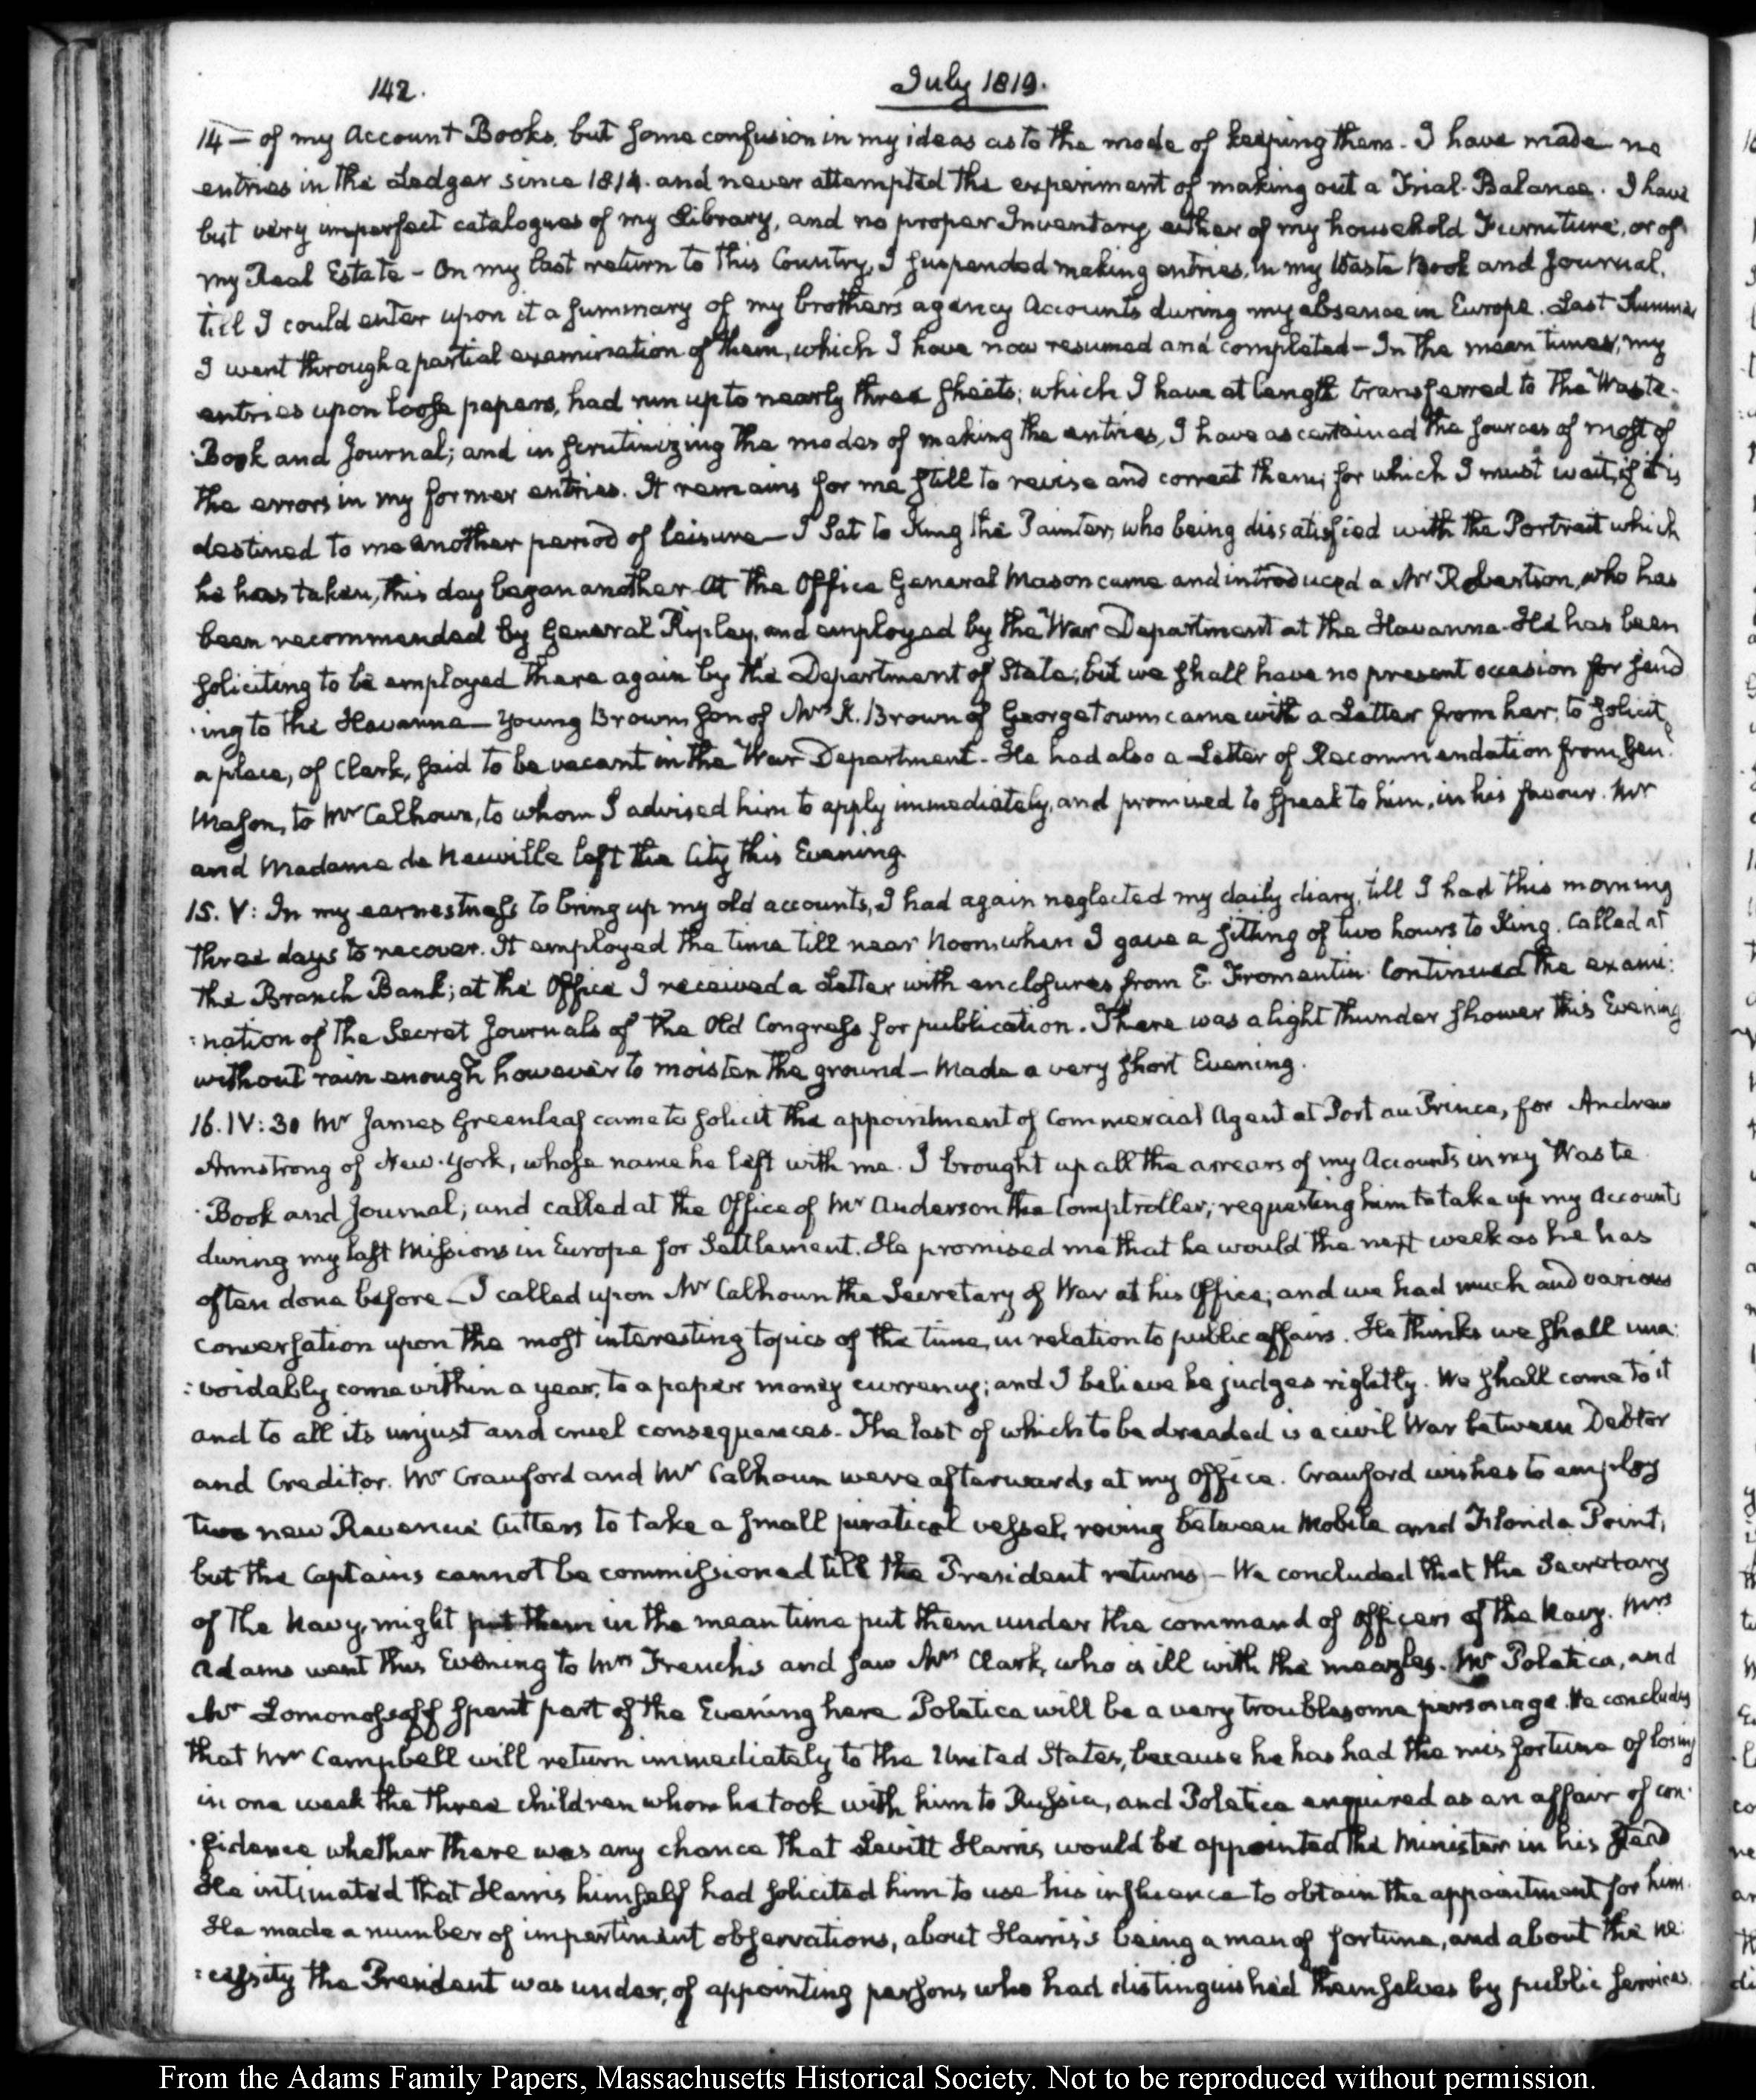 142.
July 1819.
14 — of my Account Books, but some confusion in my ideas as to the mode of keeping them. I have made no
entries in the Ledger since 1814. and never attempted the experiment of making out a Trial-Balance. I have
but very imperfect catalogues of my Library, and no proper Inventory either of my household Furniture, or of
my Real Estate — On my last return to this Country, I suspended making entries, in my Waste Book and Journal,
till I could enter upon it a summary of my brother's agency Accounts during my absence in Europe. Last Summer
I went through a partial examination of them, which I have now resumed and completed — In the mean time, my
entries upon loose papers, had run up to nearly three sheets; which I have at length transferred to the Waste-
Book and Journal; and in scrutinizing the modes of making the entries, I have ascertained the sources of most of
the errors in my former entries. It remains for me still to revise and correct them; for which I must wait, if it is
destined to me another period of leisure — I sat to King the Painter, who being dissatisfied with the Portrait which
he has taken, this day began another. At the Office General Mason came and introduced a Mr Robertson, who has
been recommended by General Ripley, and employed by the War Department at the Havanna. He has been
soliciting to be employed there again by the Department of State; but we shall have no present occasion for send
:ing to the Havanna — Young Brown, son of Mrs K. Brown of Georgetown came with a Letter from her, to solicit
a place, of Clerk, said to be vacant in the War Department. He had also a Letter of Recommendation from Genl
Mason, to Mr Calhoun, to whom I advised him to apply immediately, and promised to speak to him, in his favour. Mr
and Madame de Neuville left the City this Evening.
15. V: In my earnestness to bring up my old accounts, I had again neglected my daily diary, till I had this morning
three days to recover. It employed the time till near Noon, when I gave a sitting of two hours to King. Called at
the Branch Bank; at the Office I received a Letter with enclosures from E. Fromentin. Continued the exami:
:nation of the Secret Journals of the Old Congress for publication. There was a light thunder shower this Evening
without rain enough however to moisten the ground — Made a very short Evening.
16. IV: 30 Mr James Greenleaf came to solicit the appointment of Commercial Agent at Port au Prince, for Andrew
Armstrong of New-York, whose name he left with me. I brought up all the arrears of my Accounts in my Waste
Book and Journal; and called at the Office of Mr Anderson the Comptroller; requesting him to take up my Accounts
during my last Missions in Europe for Settlement. He promised me that he would the next week as he has
often done before — I called upon Mr Calhoun the Secretary of War at his Office; and we had much and various
conversation upon the most interesting topics of the time, in relation to public affairs. He thinks we shall una:
:voidably come within a year, to a paper money currency; and I believe he judges rightly. We shall come to it
and to all its unjust and cruel consequences. The last of which to be dreaded is a civil War between Debtor
and Creditor. Mr Crawford and Mr Calhoun were afterwards at my Office. Crawford wishes to employ
two new Revenue Cutters to take a small piratical vessel, roving between Mobile and Florida Point,
but the Captains cannot be commissioned till the President returns — We concluded that the Secretary
of the Navy, might put them in the mean time put them under the command of Officers of the Navy. Mrs
Adams went this Evening to Mrs French's and saw Mrs Clark, who is ill with the meazles. Mr Poletica, and
Mr Lomonosoff spent part of the Evening here. Poletica will be a very troublesome personage. He concludes
that Mr Campbell will return immediately to the United States, because he has had the misfortune of losing
in one week the three children whom he took with him to Russia, and Poletica enquired as an affair of con:
:fidence whether there was any chance that Levitt Harris, would be appointed the Minister in his stead
He intimated that Harris himself had solicited him to use his influence to obtain the appointment for him.
He made a number of impertinent observations, about Harris's being a man of fortune, and about the ne:
:cessity the President was under, of appointing persons who had distinguished themselves by public services.
From the Adams Family Papers, Massachusetts Historical Society. Not to be reproduced without permission.